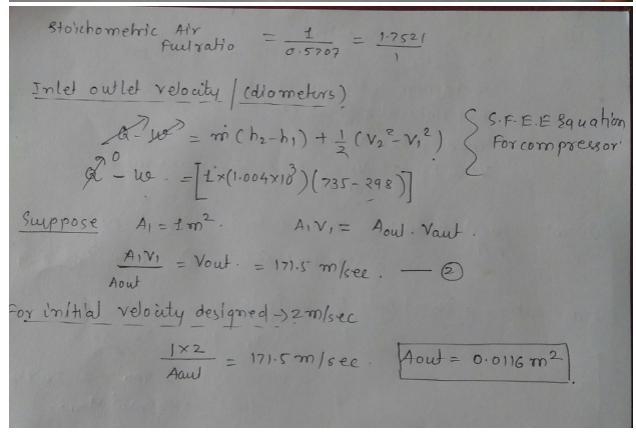 Stoichometric Air
fuel ratio = 1/0.5707 = 1.7521/1
Inlet outlet velocity / (diometers)
Q - W = ṁ (h₂-h₁) + 1/2 (V₂² - V₁²) { S.F.E.E Equation
For compressor
Q⁰ - W = [1×(1.004×10³)(735-298)]
Suppose A₁ = 1m². A₁V₁ = Aout. Vout.
A₁V₁/Aout = Vout. = 171.5 m/sec. — ②
For initial velouty designed → 2m/sec
1×2/Aout = 171.5 m/sec. Aout = 0.0116 m²